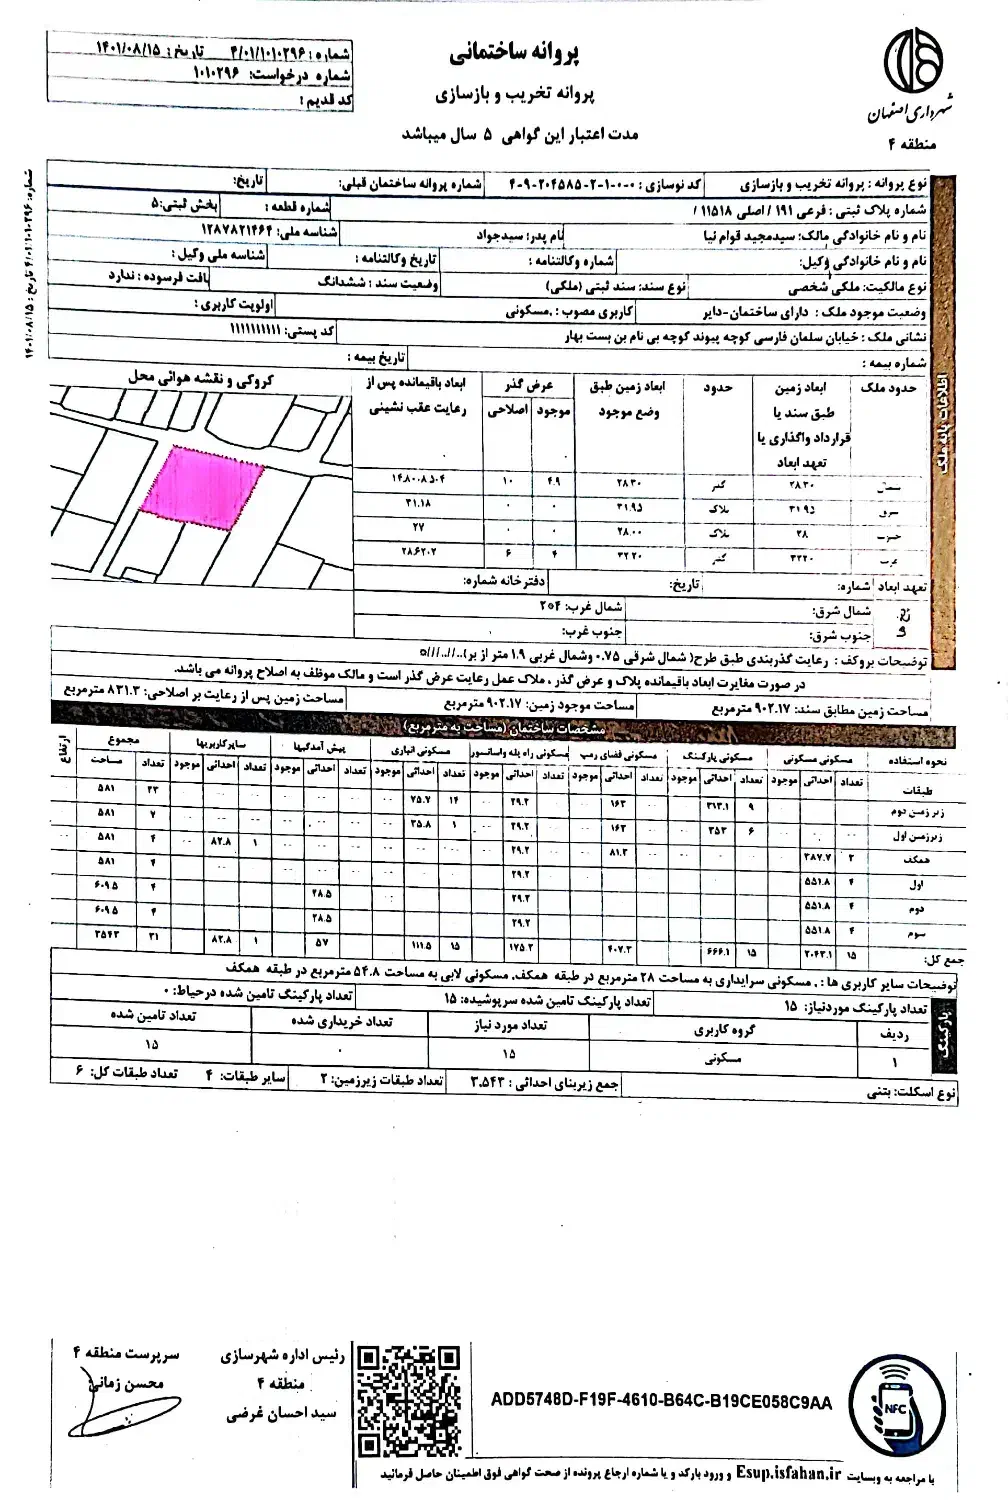 پروانه ساختمانی
پروانه تخریب و بازسازی
مدت اعتبار این گواهی ۵ سال میباشد
شهرداری اصفهان
منطقه ۴
شماره: ۴/۰۱/۱۰۱۰۲۹۶ تاریخ: ۱۴۰۱/۰۸/۱۵
شماره درخواست: ۱۰۱۰۲۹۶
کد قدیم:
شماره: ۴/۰۱/۱۰۱۰۲۹۶ تاریخ: ۱۴۰۱/۰۸/۱۵
اطلاعات پایه ملک
نوع پروانه: پروانه تخریب و بازسازی کد نوسازی: ۴-۹-۲۰۴۵۸۵-۲-۱-۰-۰ شماره پروانه ساختمان قبلی: تاریخ:
شماره پلاک ثبتی: فرعی ۱۹۱ / اصلی ۱۱۵۱۸ / شماره قطعه: بخش ثبتی:۵
نام و نام خانوادگی مالک: سیدمجید قوام نیا نام پدر: سیدجواد شناسه ملی: ۱۲۸۷۸۲۱۴۶۴
نام و نام خانوادگی وکیل: شماره وکالتنامه: تاریخ وکالتنامه: شناسه ملی وکیل:
نوع مالکیت: ملکی شخصی نوع سند: سند ثبتی (ملکی) وضعیت سند: ششدانگ بافت فرسوده: ندارد
وضعیت موجود ملک: دارای ساختمان-دایر کاربری مصوب: ,مسکونی اولویت کاربری:
نشانی ملک: خیابان سلمان فارسی کوچه پیوند کوچه بی نام بن بست بهار کد پستی: ۱۱۱۱۱۱۱۱۱۱
شماره بیمه: تاریخ بیمه:
حدود ملک ابعاد زمین طبق سند یا قرارداد واگذاری یا تعهد ابعاد حدود ابعاد زمین طبق وضع موجود عرض گذر موجود اصلاحی ابعاد باقیمانده پس از رعایت عقب نشینی کروکی و نقشه هوائی محل
شمال ۲۸.۳۰ گذر ۲۸.۳۰ ۴.۹ ۱۰
شرق ۳۱.۹۵ پلاک ۳۱.۹۵ ۰ ۰ ۳۱.۱۸
جنوب ۲۸ پلاک ۲۸.۰۰ ۰ ۰ ۲۷
غرب ۳۲.۲۰ گذر ۳۲.۲۰ ۴ ۶
تعهد ابعاد شماره: تاریخ: دفترخانه شماره:
شمال شرق: شمال غرب: ۲*۵۴
جنوب شرق: جنوب غرب:
توضیحات بروکف: رعایت گذربندی طبق طرح( شمال شرقی ۰.۷۵ وشمال غربی ۱.۹ متر از بر)
در صورت مغایرت ابعاد باقیمانده پلاک و عرض گذر ، ملاک عمل رعایت عرض گذر است و مالک موظف به اصلاح پروانه می باشد.
مساحت زمین مطابق سند: ۹۰۲.۱۷ مترمربع مساحت موجود زمین: ۹۰۲.۱۷ مترمربع مساحت زمین پس از رعایت بر اصلاحی: ۸۳۱.۳ مترمربع
مشخصات ساختمان (مساحت به مترمربع)
نحوه استفاده مسکونی مسکونی مسکونی پارکینگ مسکونی فضای رمپ مسکونی راه پله واسانسور مسکونی انباری پیش آمدگیها سایرکاربریها مجموع ارتفاع
طبقات تعداد احداثی موجود تعداد احداثی موجود تعداد احداثی موجود تعداد احداثی موجود تعداد احداثی موجود تعداد احداثی موجود تعداد احداثی موجود تعداد مساحت
زیرزمین دوم ۹ ۳۱۳.۱ ۱۶۳ ۲۹.۲ ۱۴ ۷۵.۷ ۲۳ ۵۸۱
زیرزمین اول ۶ ۳۵۳ ۱۶۳ ۲۹.۲ ۱ ۳۵.۸ ۷ ۵۸۱
همکف ۳ ۳۸۷.۷ ۸۱.۳ ۲۹.۲ ۱ ۸۲.۸ ۴ ۵۸۱
اول ۴ ۵۵۱.۸ ۲۹.۲ ۴ ۵۸۱
دوم ۴ ۵۵۱.۸ ۲۹.۲ ۲۸.۵ ۴ ۶۰۹.۵
سوم ۴ ۵۵۱.۸ ۲۹.۲ ۲۸.۵ ۴ ۶۰۹.۵
جمع کل: ۱۵ ۲۰۴۳.۱ ۱۵ ۶۶۶.۱ ۴۰۷.۳ ۱۷۵.۲ ۱۵ ۱۱۱.۵ ۵۷ ۱ ۸۲.۸ ۳۱ ۳۵۴۳
توضیحات سایر کاربری ها: , مسکونی سرایداری به مساحت ۲۸ مترمربع در طبقه همکف, مسکونی لابی به مساحت ۵۴.۸ مترمربع در طبقه همکف
پارکینگ
تعداد پارکینگ موردنیاز: ۱۵ تعداد پارکینگ تامین شده سرپوشیده: ۱۵ تعداد پارکینگ تامین شده درحیاط: ۰
ردیف گروه کاربری تعداد مورد نیاز تعداد خریداری شده تعداد تامین شده
۱ مسکونی ۱۵ ۰ ۱۵
نوع اسکلت: بتنی جمع زیربنای احداثی: ۳,۵۴۳ تعداد طبقات زیرزمین: ۲ سایر طبقات: ۴ تعداد طبقات کل: ۶
رئیس اداره شهرسازی
منطقه ۴
سید احسان غرضی
سرپرست منطقه ۴
محسن زمانی
ADD5748D-F19F-4610-B64C-B19CE058C9AA
NFC
با مراجعه به وبسایت Esup.isfahan.ir و ورود بارکد و یا شماره ارجاع پرونده از صحت گواهی فوق اطمینان حاصل فرمائید